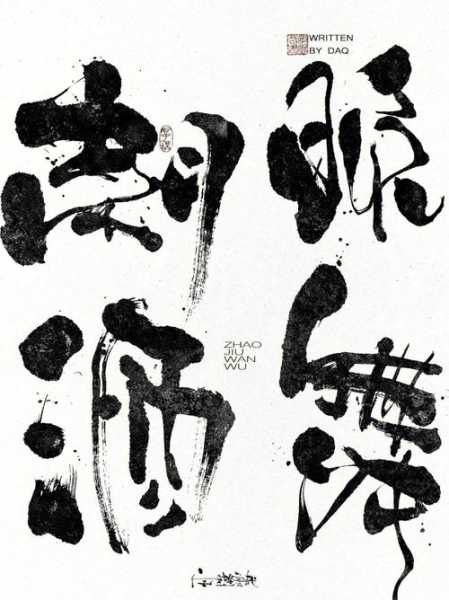 WRITTEN
BY DAQ
朝酒
晚舞
ZHAO
JIU
WAN
WU